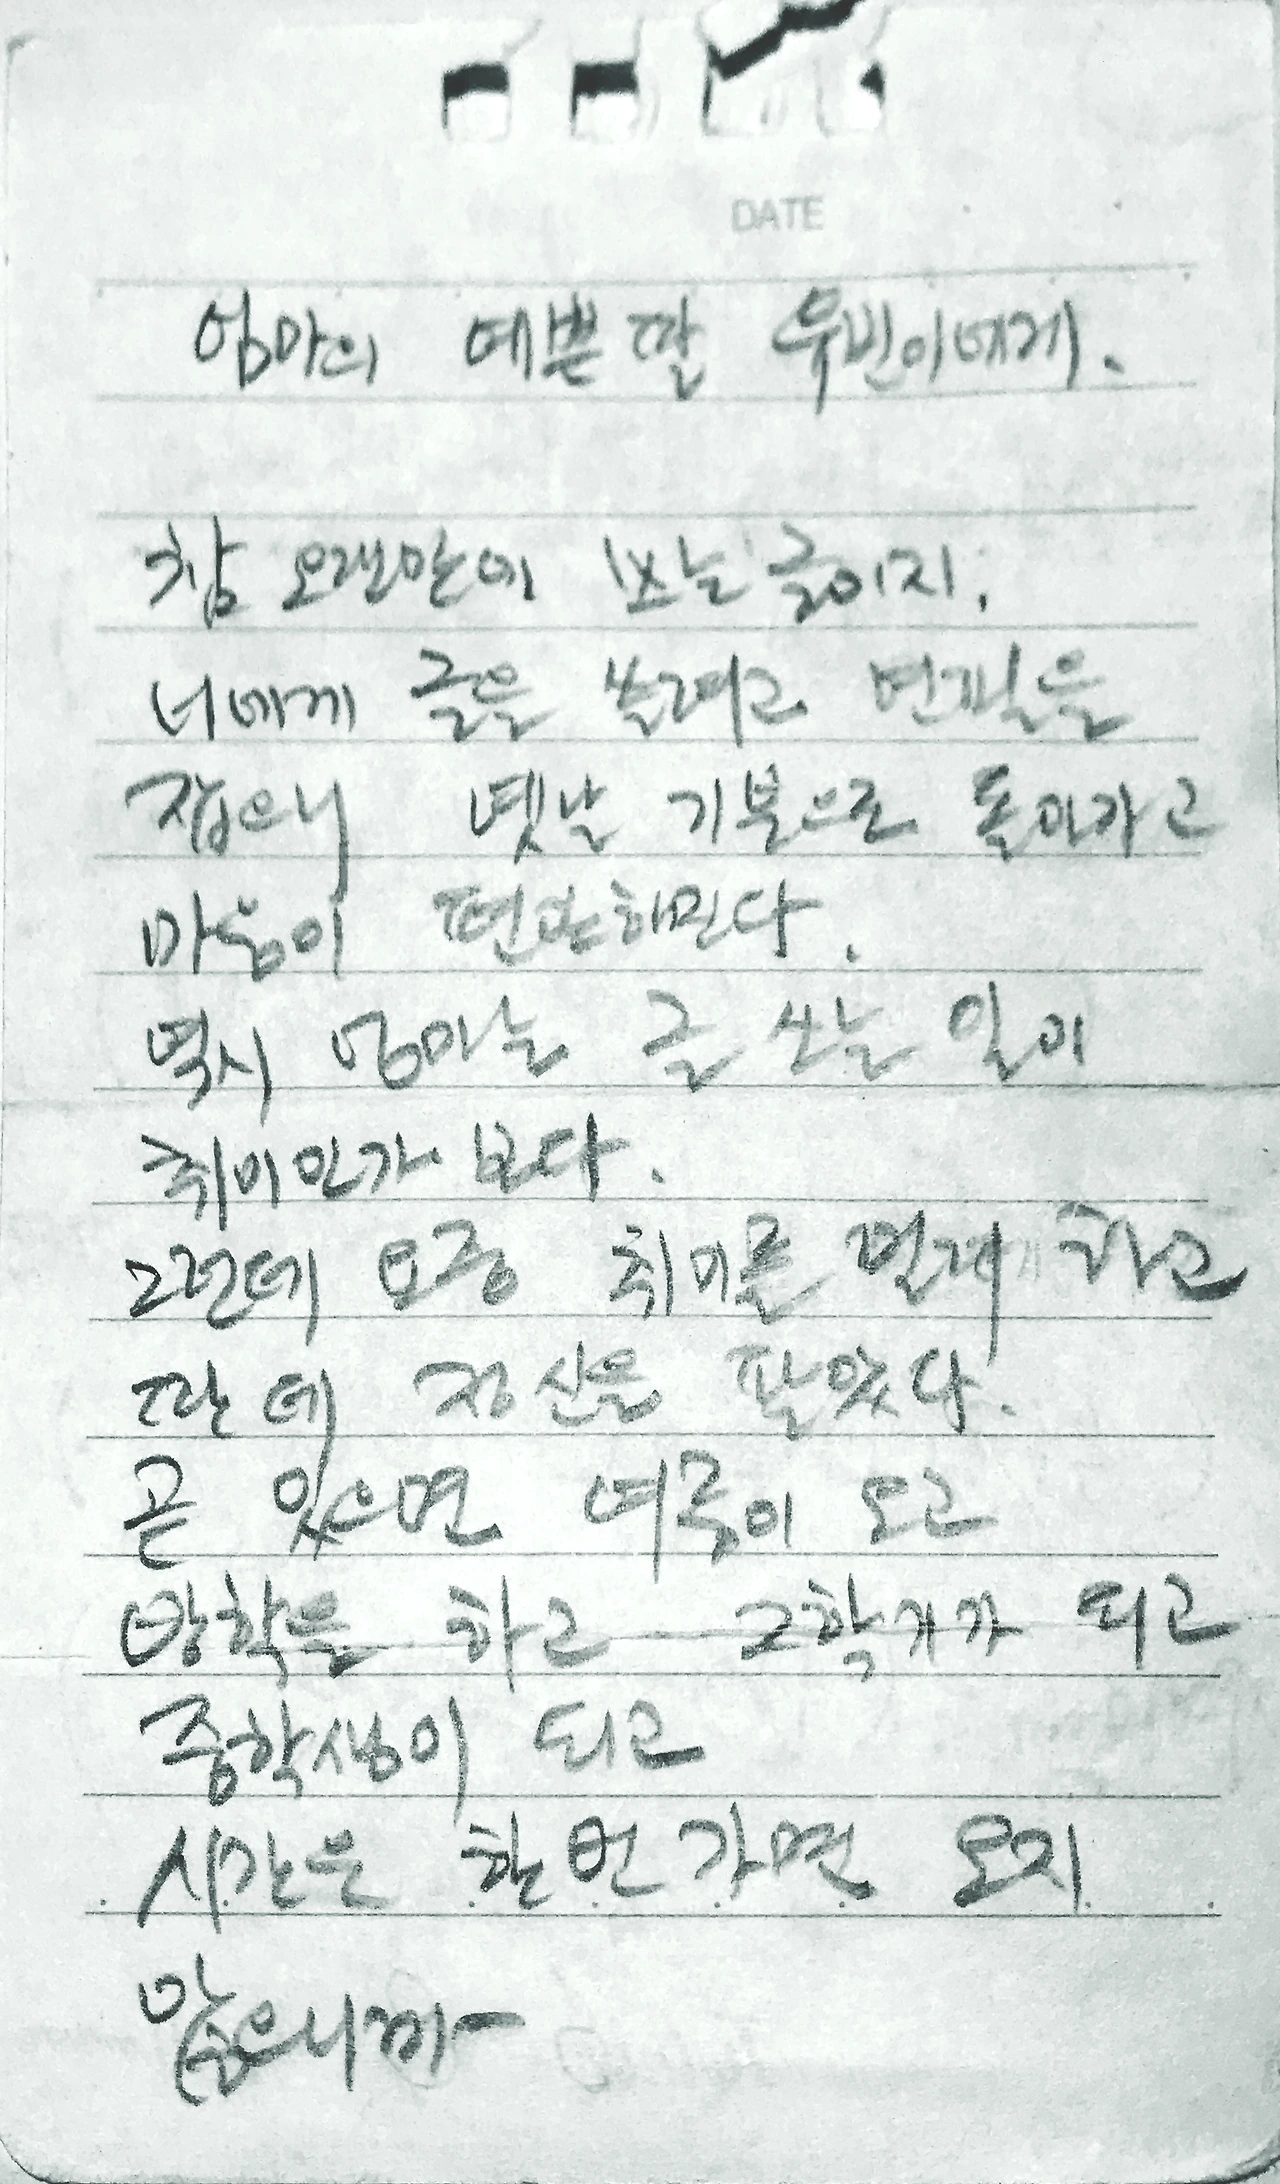 DATE
엄마의 예쁜 딸 유빈이에게.
참 오랜만에 쓰는 글이지.
너에게 글을 쓸려고 연필을
잡으니 옛날 기분으로 돌아가고
마음이 편안해진다.
역시 엄마는 글 쓰는 일이
취미인가 보다.
그런데 요즘 취미를 멀게 하고
딴 데 정신을 팔았다.
곧 있으면 여름이 오고
방학을 하고 2학기가 되고
중학생이 되고
시간은 한번 가면 오지
않으니까-